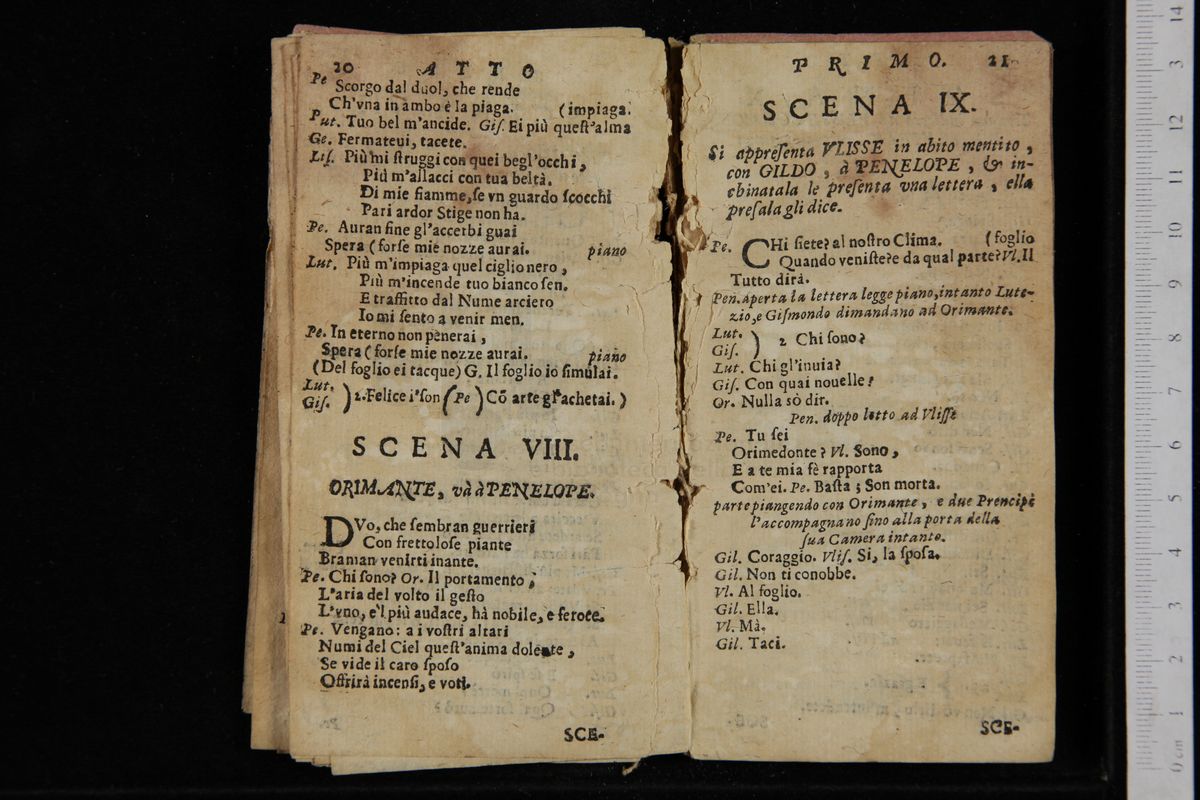 20 ATTO
Pe Scorgo dal duol, che rende
Ch'vna in ambo è la piaga. (impiaga.
Put. Tuo bel m'ancide. Giſ. Ei più queſt'alma
Ge. Fermateui, tacete.
Liſ. Più mi ſtruggi con quei begl'occhi,
Più m'allacci con tua beltà.
Di mie fiamme, ſe vn guardo ſcocchi
Pari ardor Stige non ha.
Pe. Auran fine gl'accerbi guai
Spera (forſe mie nozze aurai. piano
Lut. Più m'impiaga quel ciglio nero,
Più m'incende tuo bianco ſen.
E traffitto dal Nume arciero
Io mi ſento a venir men.
Pe. In eterno non penerai,
Spera (forſe mie nozze aurai. piano
(Del foglio ei tacque) G. Il foglio io ſimulai.
Lut.
Giſ. ) 2. Felice i'ſon (Pe) Cõ arte gl'achetai.)
SCENA VIII.
ORIMANTE, và à PENELOPE.
DVo, che ſembran guerrieri
Con frettoloſe piante
Braman venirti inante.
Pe. Chi ſono? Or. Il portamento,
L'aria del volto il geſto
L'vno, e'l più audace, hà nobile, e feroce.
Pe. Vengano: a i voſtri altari
Numi del Ciel queſt'anima dolente,
Se vide il caro ſpoſo
Offrirà incenſi, e voti.
SCE-
PRIMO. 21
SCENA IX.
Si appreſenta VLISSE in abito mentito,
con GILDO, à PENELOPE, & in-
chinatala le preſenta vna lettera, ella
preſala gli dice.
Pe. CHi ſiete? al noſtro Clima. (foglio
Quando veniſte? e da qual parte? Vl. Il
Tutto dirà.
Pen. aperta la lettera legge piano, intanto Lute-
zio, e Giſmondo dimandano ad Orimante.
Lut.
Giſ. ) 2 Chi ſono?
Lut. Chi gl'inuia?
Giſ. Con quai nouelle?
Or. Nulla sò dir.
Pen. doppo letto ad Vliſſe
Pe. Tu ſei
Orimedonte? Vl. Sono,
E a te mia fè rapporta
Com'ei. Pe. Baſta; Son morta.
parte piangendo con Orimante, e due Prencipi
l'accompagnano fino alla porta della
ſua Camera intanto.
Gil. Coraggio. Vliſ. Si, la ſpoſa.
Gil. Non ti conobbe.
Vl. Al foglio.
Gil. Ella.
Vl. Mà.
Gil. Taci.
SCE-
14
13
12
11
10
9
8
7
6
5
4
3
2
1
0 cm